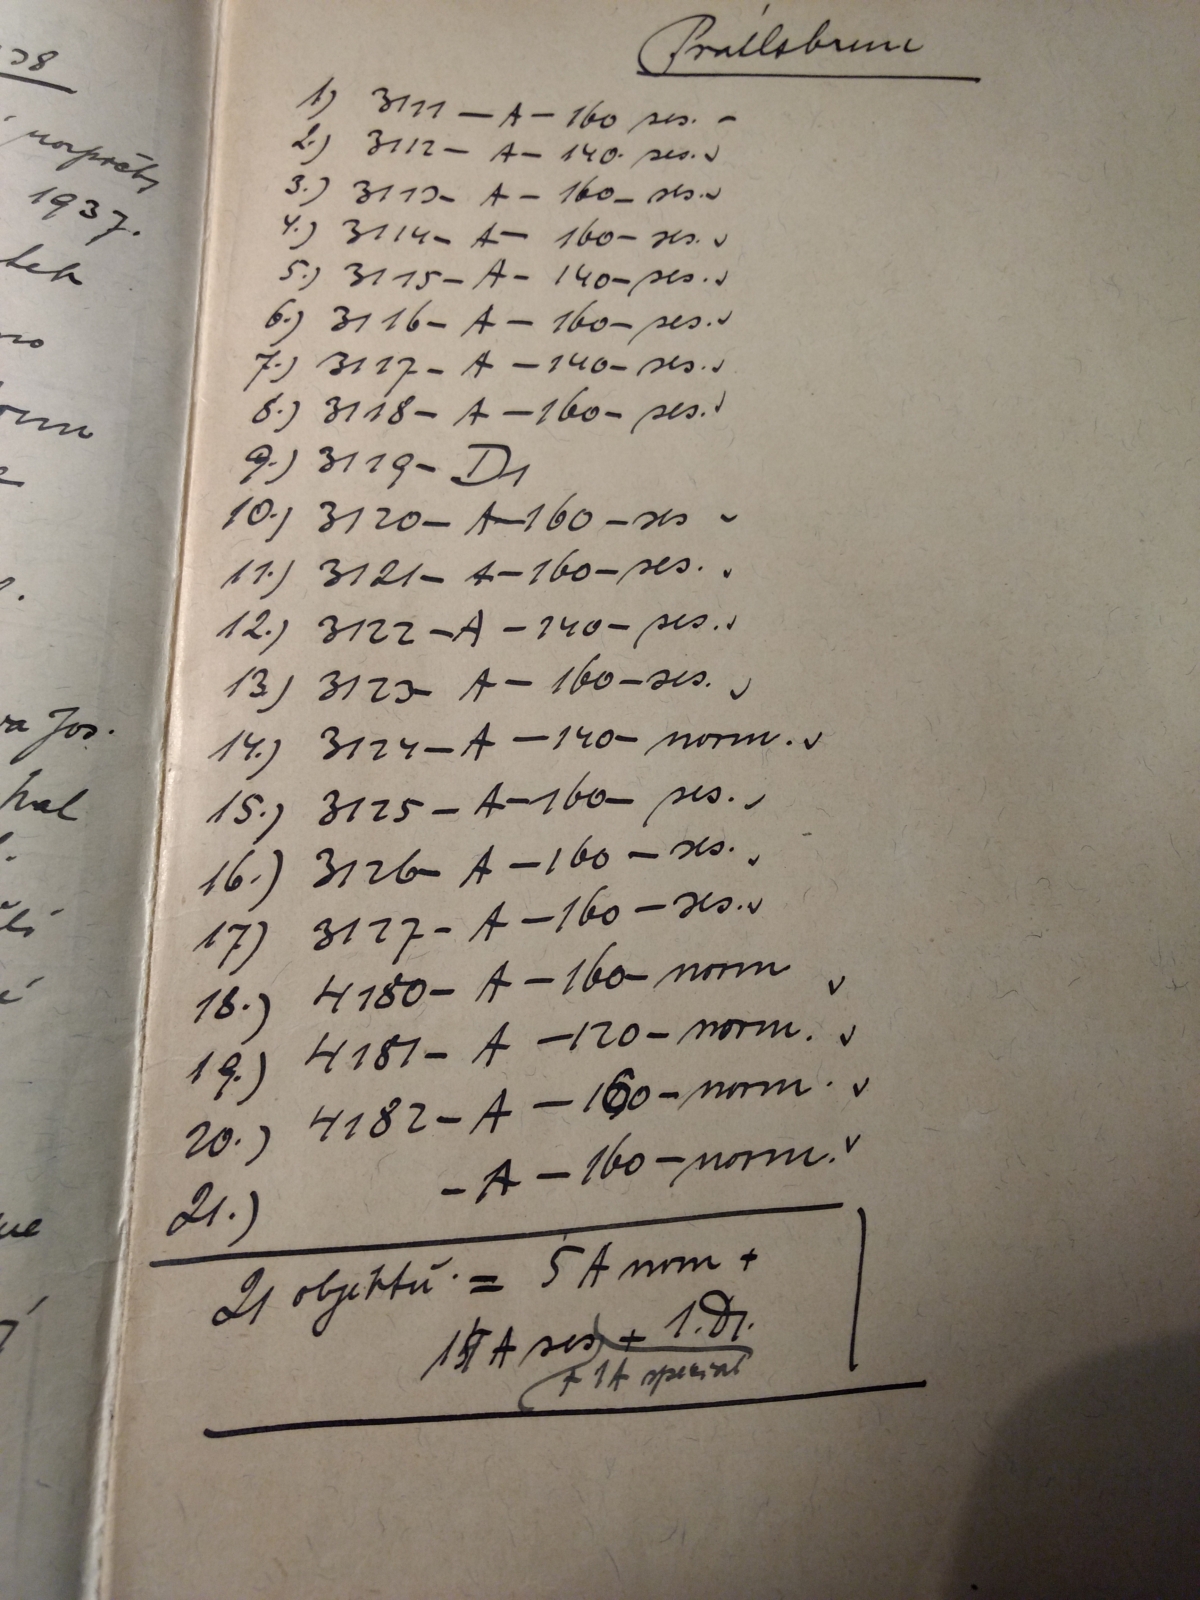 38
1937.
1) 3111 – A – 160 ses. –
2.) 3112 – A – 140. ses. ✓
3.) 3113 – A – 160 – ses. ✓
4.) 3114 – A – 160 – ses. ✓
5.) 3115 – A – 140 – ses. ✓
6.) 3116 – A – 160 – ses. ✓
7.) 3117 – A – 140 – ses. ✓
8.) 3118 – A – 160 – ses. ✓
9.) 3119 – D1
10.) 3120 – A – 160 – ses ✓
11.) 3121 – A – 160 – ses. ✓
12.) 3122 – A – 140 – ses. ✓
13) 3123 – A – 160 – ses. ✓
14.) 3124 – A – 140 – norm. ✓
15.) 3125 – A – 160 – ses. ✓
16.) 3126 – A – 160 – ses. ✓
17) 3127 – A – 160 – ses. ✓
18.) 4180 – A – 160 – norm ✓
19.) 4181 – A – 120 – norm. ✓
20.) 4182 – A – 160 – norm. ✓
21.) – A – 160 – norm. ✓
21 objektů = 5 A norm +
A ses + 1. D1.
+ 1A special